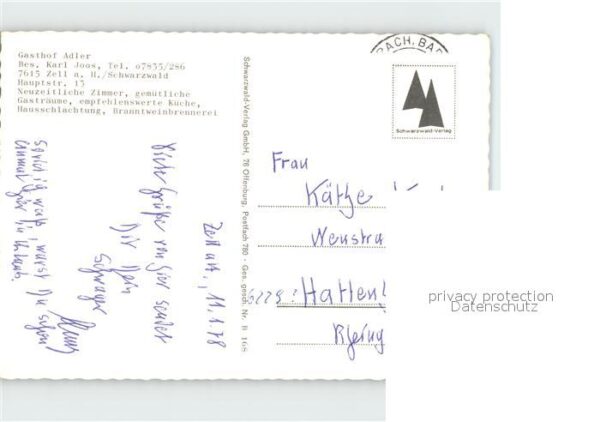 Gasthof Adler
Bes. Karl Joos, Tel. o7835/286
7615 Zell a. H./Schwarzwald
Hauptstr. 13
Neuzeitliche Zimmer, gemütliche
Gasträume, empfehlenswerte Küche,
Hausschlachtung, Branntweinbrennerei
Schwarzwald-Verlag GmbH, 76 Offenburg, Postfach 780 - Ges. gesch. Nr. B 168
BACH, BA
Schwarzwald-Verlag
Zell a.H., 11.1.78
Viele Grüße von hier sendet
Dir Dein
Schwager
Soviel ich weiß, warst Du schon
einmal hier in Urlaub.
Frau
Käthe
Neustra
6229 Hatten
Rheing
privacy protection
Datenschutz